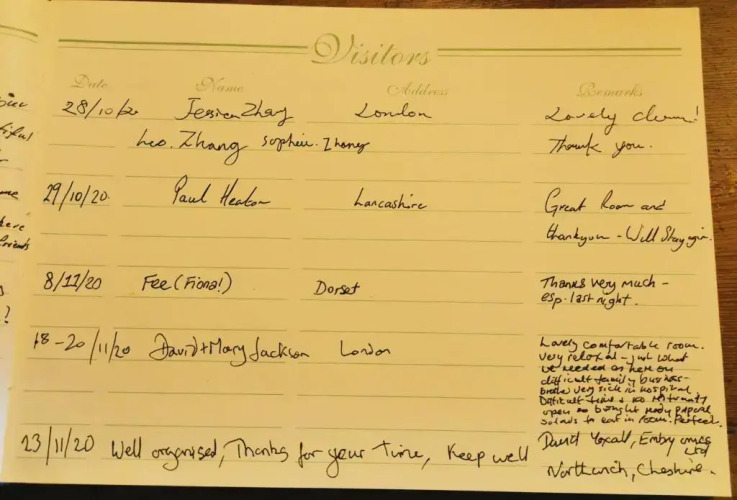 Visitors
Date Name Address Remarks
28/10/20 Jessica Zhang London Lovely clean!
Leo. Zhang Sophia. Zhang Thank you.
29/10/20. Paul Heaton Lancashire Great Room and
thankyou - Will Stay agin.
8/11/20 Fee (Fiona!) Dorset Thanks very much -
esp. last night.
18-20/11/20 David + Mary Jackson London Lovely comfortable room.
Very relaxed - just what
we needed as here on
difficult family business -
brother very sick in hospital.
Difficult time & no restaurants
open so brought ready prepared
salads to eat in room. Perfect.
23/11/20 Well organised, Thanks for your Time, Keep well David Yoxall,
Ltd
Northwich, Cheshire.